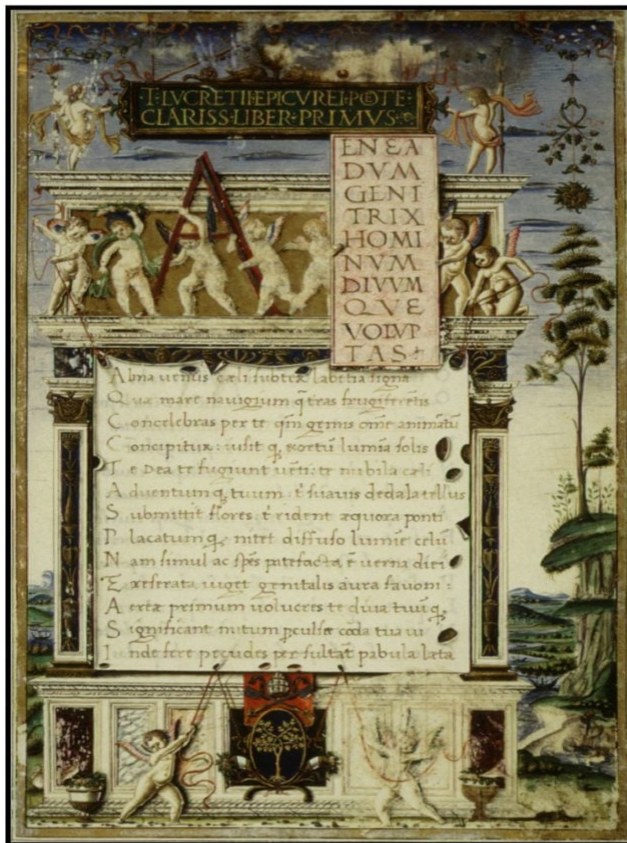 T·LVCRETII·EPICVREI·POTE·
CLARISS·LIBER·PRIMVS·
A
ENEA
DVM
GENI
TRIX
HOMI
NVM
DIVUM
QVE
VOLVP
TAS
Alma uenus cæli subter labētia signa
Quæ mare nauigium q̄ terras frugiferētis
Concelebras per te qm̄ genus om̄e animātū
Concipitur: uisit q̨ exortū lumīa solis
Te Dea te fugiunt uēti: te nubila cæli
Aduentum q̨ tuum: t' suauis dedala tellus
Submittit flores: t' rident æquora ponti
Placatum q̨ nitet diffuso lumīe celū
Nam simul ac spēs patefacta ē uerna diei
Et reserata uiget genitalis aura fauoni:
Aereæ primum uolucres te diua tuū q̨
Significant initum p̄culsæ corda tua ui
Inde fere pecudes per sultāt pabula læta